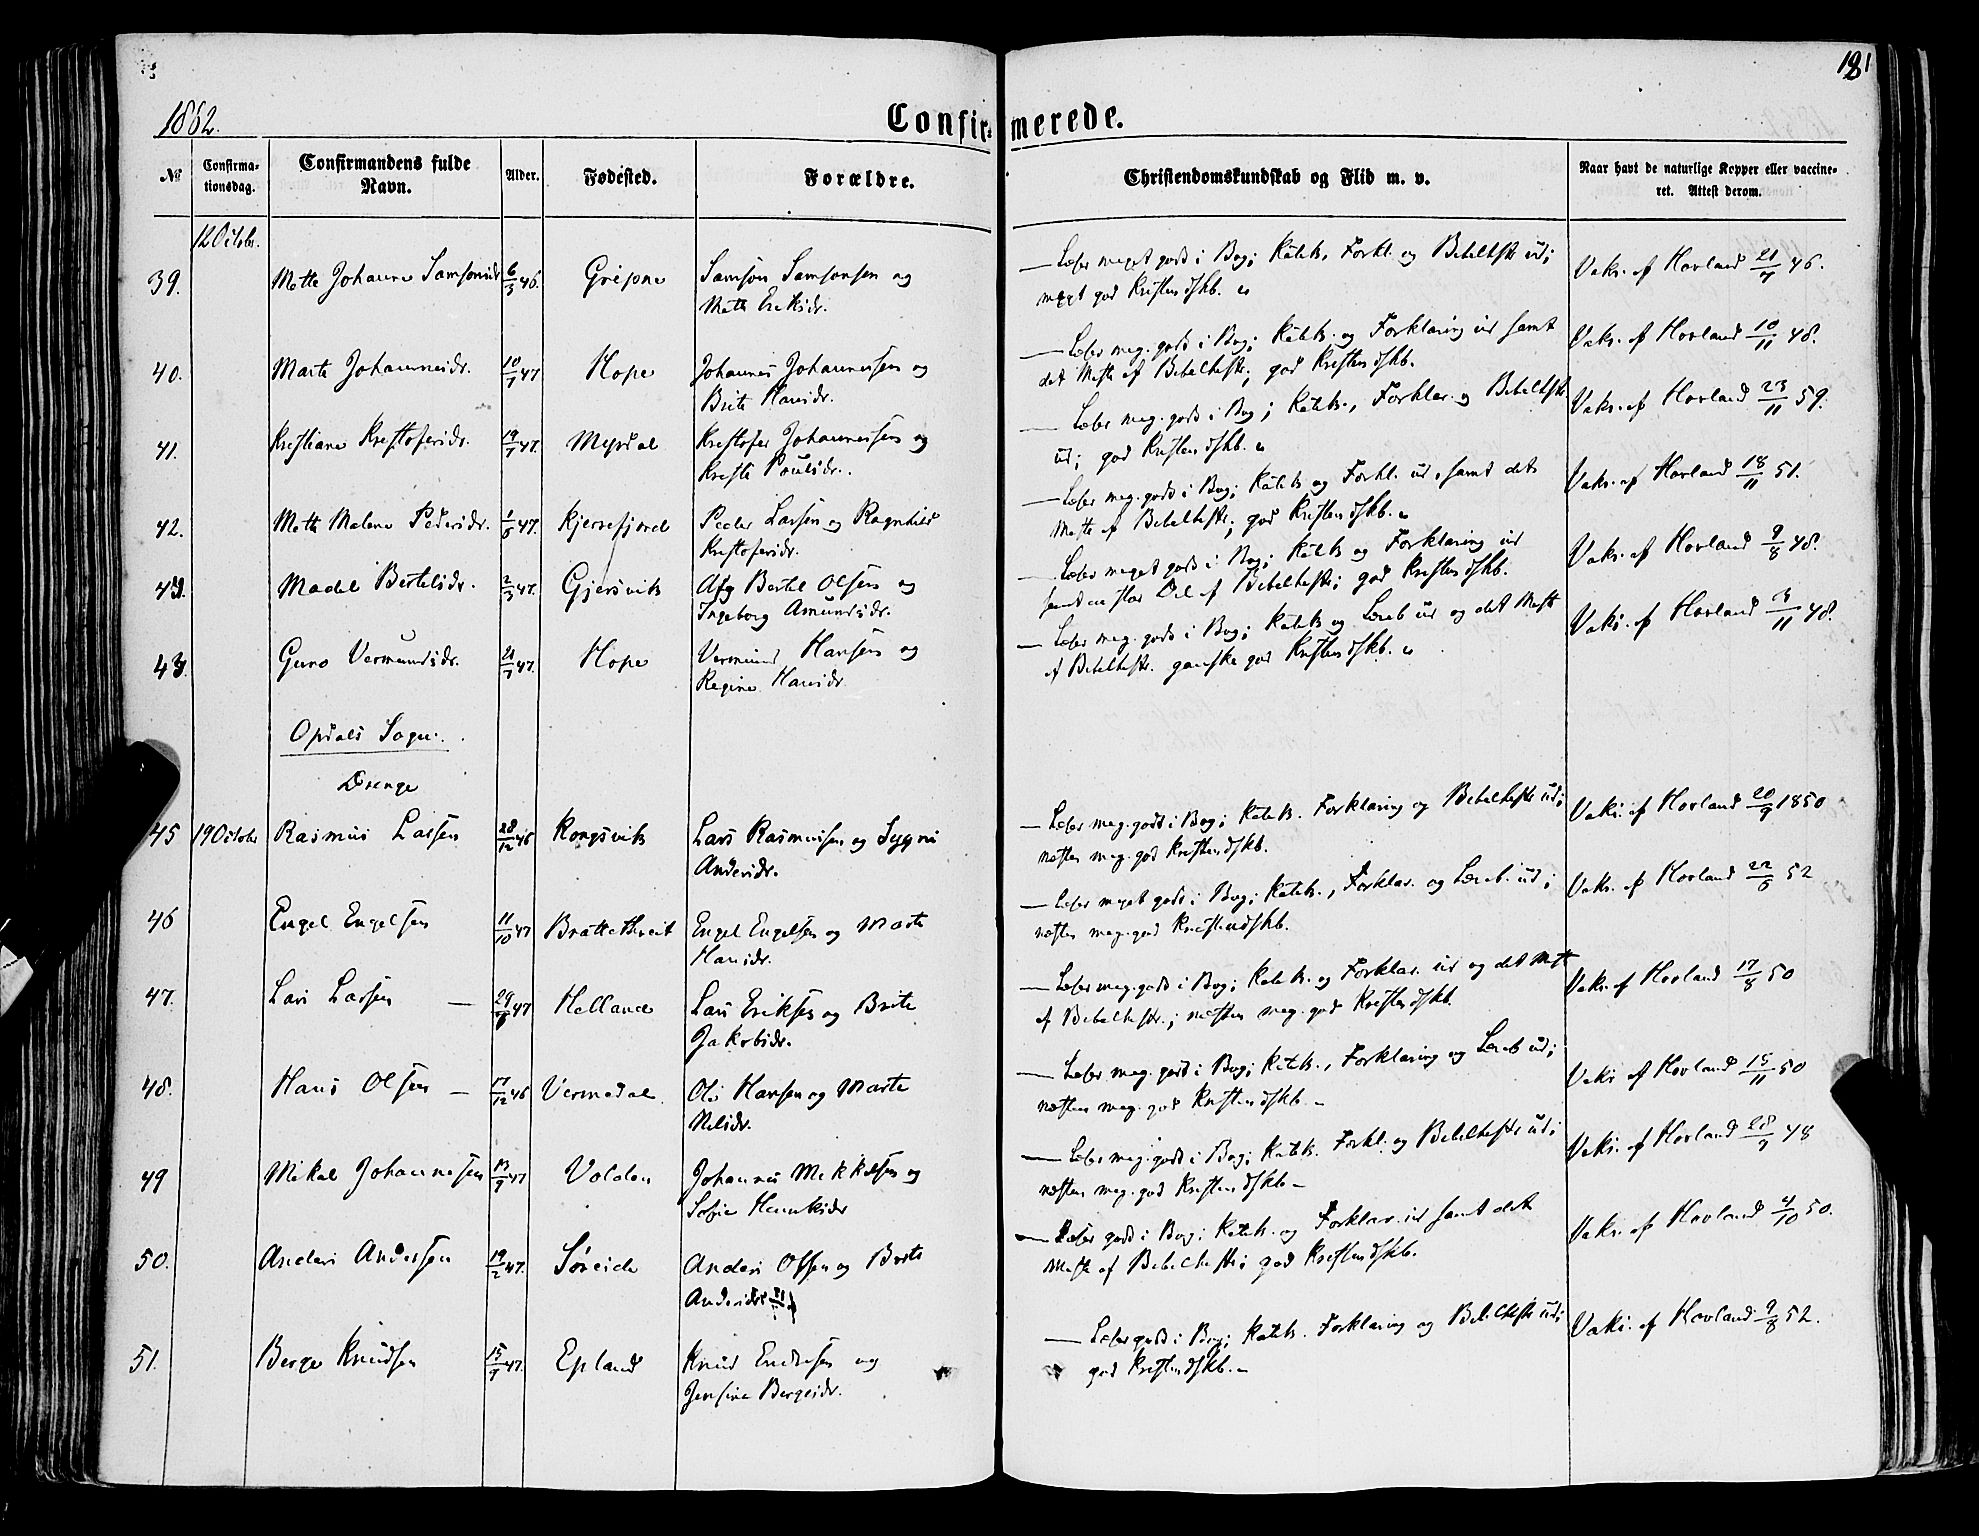 1862.
Confirmerede.
181
№
Confirma-
tionsdag.
Confirmandens fulde
Navn.
Alder.
Fødested.
Forældre.
Christendomskundskab og Flid m. v.
Naar havt de naturlige Kopper eller vaccine-
ret. Attest derom.
12 Octobr.
39. Mette Johanne Samsonsdr. 6/3 46. Gripne Samson Samsonsen og
Mette Eriksdr.
— Læser meget godt i Bog; Katek. Forkl. og Bibelhist. ud;
meget god Kristendskb.
Vaks. af Hovland 21/7 46.
40. Marte Johannesdr. 10/7 47 Hope Johannes Johannessen og
Brite Hansdr.
— Læser meg. godt i Bog; Katek. og Forklaring ud samt
det Meste af Bibelhist.; god Kristendskb.
Vaks. af Hovland 10/11 48.
41. Kristiane Kristofersdr. 19/7 47. Myrdal Kristofer Johannessen og
Kristi Poulsdr.
— Læser meg. godt i Bog; Katek., Forklar. og Bibelhist.
ud; god Kristendskb.
Vaks. af Hovland 23/11 59.
42. Mette Malene Pedersdr. 1/6 47. Kjerrefjord Peder Larsen og Ragnhild
Kristofersdr.
— Læser meg. godt i Bog; Katek og Forkl. ud, samt det
Meste af Bibelhist.; god Kristendskb.
Vaks. af Hovland 18/11 51.
43. Madel Bertelsdr. 2/3 47. Gjersvik Afg Bertel Olsen og
Ingeborg Amundsdr.
— Læser meget godt i Bog; Katek og Forklaring ud
samt en stor Del af Bibelhist; god Kristendskb.
Vaks. af Hovland 9/8 48.
43. Guro Vermundsdr. 21/7 47. Hope Vermund Hansen og
Regine Hansdr.
— Læser meg. godt i Bog; Katek og Læreb ud og det Meste
af Bibelhist. ganske god Kristendskb.
Vaks. af Hovland 3/11 48.
Opdals Sogn.
Drenge
45 19 Octobr Rasmus Larsen 28/12 46 Kongsvik Lars Rasmussen og Sygni
Andersdr.
— Læser meg. godt i Bog; Katek. Forklaring og Bibelhist ud;
næsten meg. god Kristendskb.
Vaks. af Hovland 20/9 1850
46 Engel Engelsen 11/10 47 Brattethveit Engel Engelsen og Marte
Hansdr.
— Læser meget godt i Bog; Katek., Forklar. og Læreb. ud;
næsten meg. god Kristendskb.
Vaks. af Hovland 22/6 52
47. Lars Larsen — 29/6 47 Helland Lars Eriksen og Brite
Jakobsdr.
— Læser meg. godt i Bog; Katek. og Forklar. ud og det Meste
af Bibelhist.; næsten meg. god Kristendskb.
Vaks. af Hovland 17/8 50
48. Hans Olsen — 17/12 46 Vermedal. Ols Hansen og Marte
Nilsdr.
— Læser meg. godt i Bog; Katek., Forklaring og Læreb ud;
næsten meg. god Kristendskb.
Vaks af Hovland 15/11 50
49 Mikal Johannesen 13/9 47 Volden Johannes Mikkelsen og
Sofie Henriksdr
— Læser meg. godt i Bog; Katek. Forkl. og Bibelhist ud;
næsten meg. god Kristendskb.
Vaks. af Hovland 28/9 48
50. Anders Andersen 19/2 47. Søreide Anders Olsen og Brite
Andersdr.
— Læser godt i Bog; Katek. og Forklar. ud samt det
Meste af Bibelhist; god Kristendskb.
Vaks. af Hovland 4/10 50.
51. Berge Knudsen 15/9 47. Epland Knud Endresen og
Jensine Bergesdr.
— Læser godt i Bog; Katek. Forklaring og Bibelhist ud;
god Kristendskb.
Vaks. af Hovland 9/8 52.